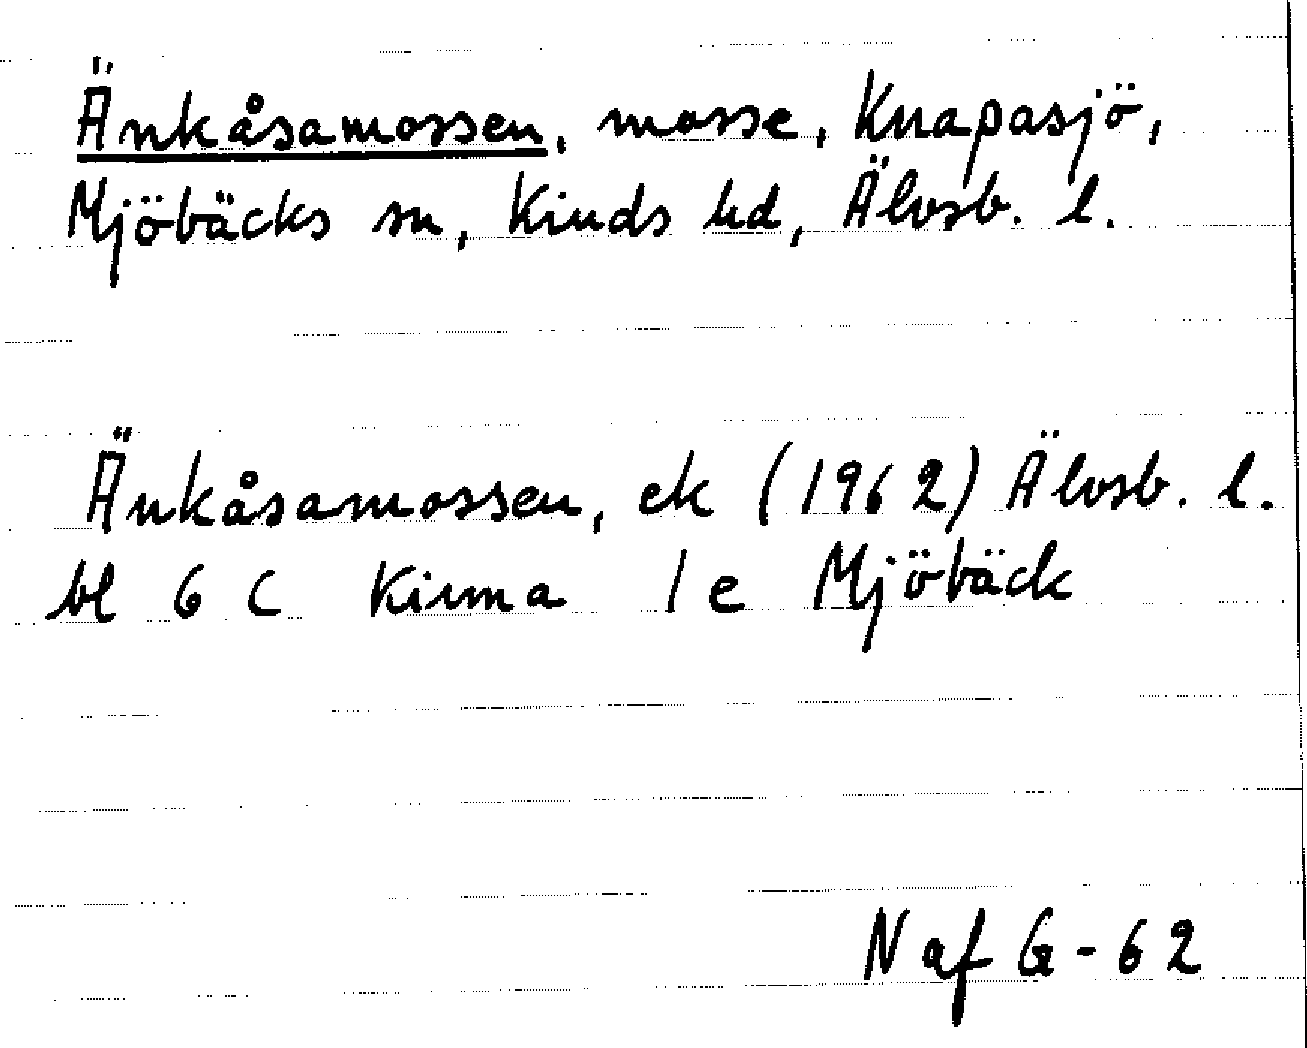 Änkåsamossen, mosse, Knapasjö,
Mjöbäcks sn, Kinds hd, Älvsb. l.
Änkåsamossen, ek (1962) Älvsb. l.
bl 6 C Kinna 1 e Mjöbäck
N af G-62